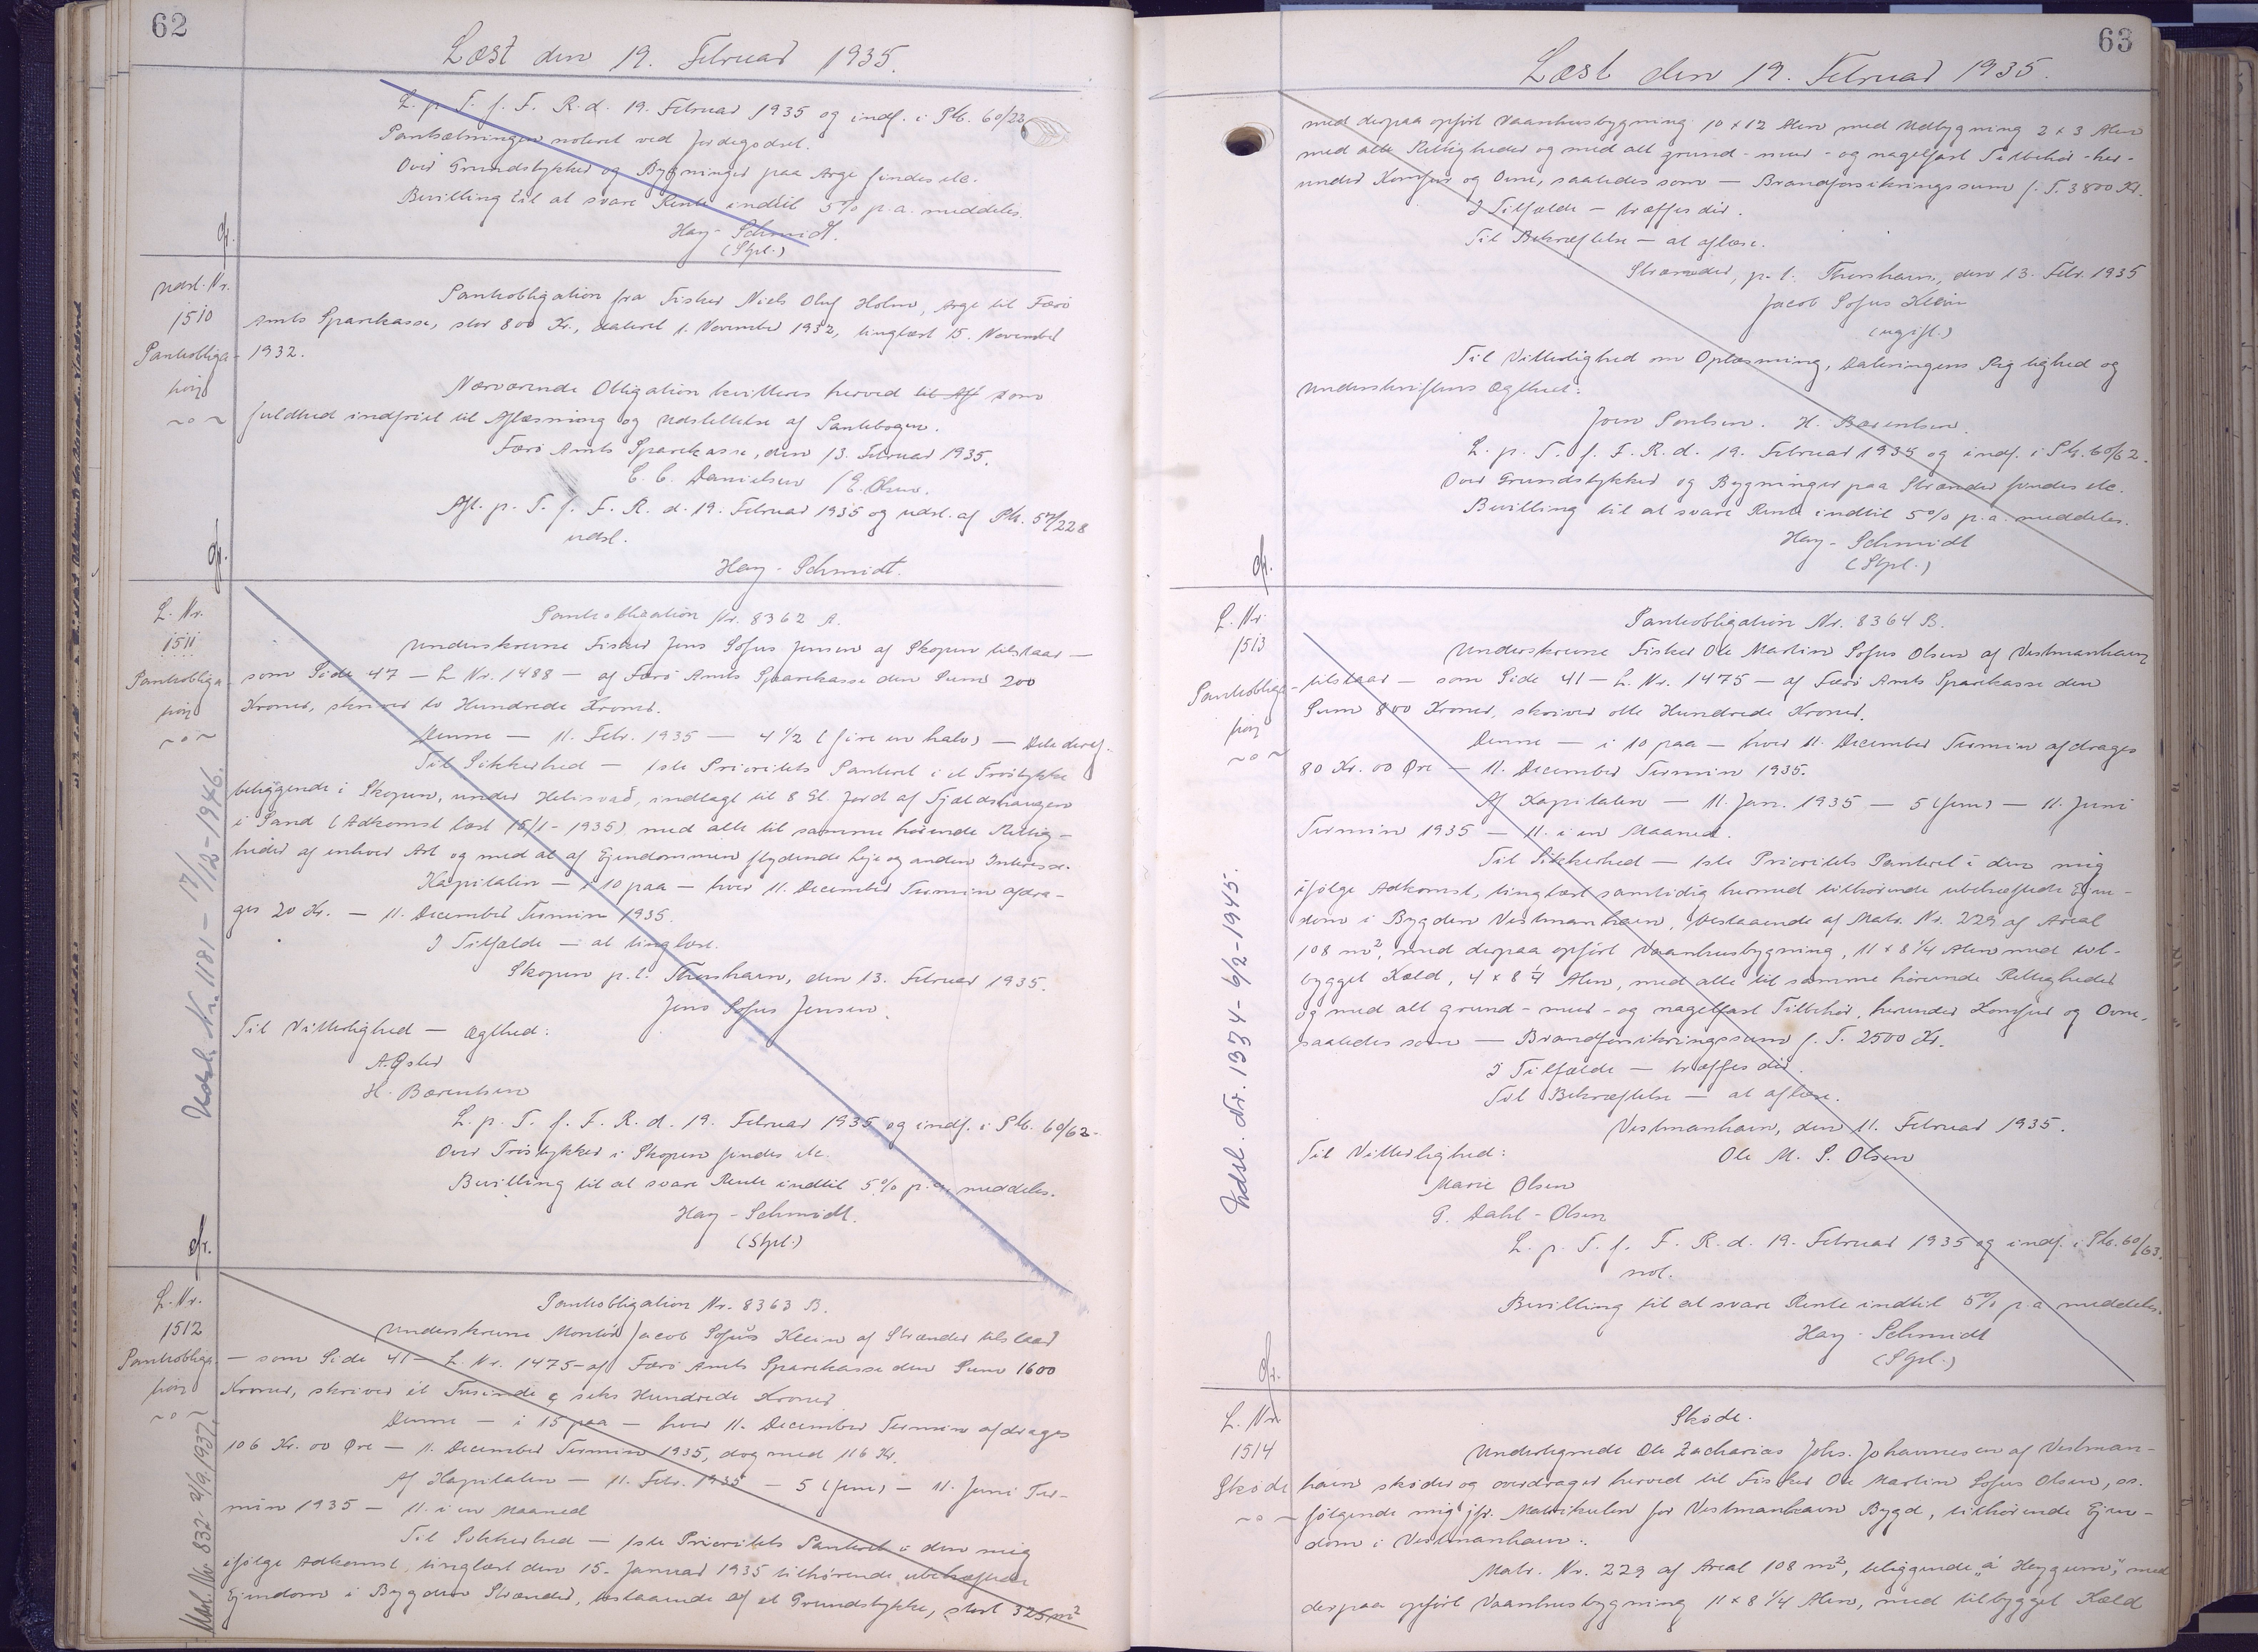 62
Læst den 19. Februar 1935.
L. p. T. f. F. R. d. 19. Februar 1935 og indf. i Pb. 60/22
Pantsætningen noteret ved Jordegodset.
Over Grundstykker og Bygninger paa Arge findes etc.
Bevilling til at svare Rente indtil 5% p.a. meddeles.
Hay-Schmidt.
(Stpl.)
Udsl. Nr.
1510
Pantobliga-
tion
~o~
Pantobligation fra Fisker Niels Oluf Holm, Arge til Færø
Amts Sparekasse, stor 800 Kr., dateret 1. November 1932, tinglæst 15. November
1932.
Nærværende Obligation kvitteres herved til Af som
fuldtud indfriet til Aflæsning og Udslettelse af Pantebogen.
Færø Amts Sparekasse, den 13. Februar 1935.
C. C. Danielsen / E. Olsen.
Afl. p. T. f. F. R. d. 19. Februar 1935 og udsl. af Pb. 57/228
udsl.
Hay-Schmidt.
L. Nr.
1511
Pantobliga-
tion
~o~
Udsl. Nr. 1181 - 17/12-1946.
Pantobligation Nr. 8362 A.
Underskrevne Fisker Jens Sofus Jensen af Skopun tilstaar —
som Side 47 — L Nr. 1488 — af Færø Amts Sparekasse den Sum 200
Kroner, skriver to Hundrede Kroner.
Denne — 11. Febr. 1935 — 4 1/2 (fire en halv) — Dele deraf.
Til Sikkerhed — 1ste Prioritets Panteret i et Trøstykke
beliggende i Skopun, under Helisvað, indlagt til 8 Gl. Jord af Fjældshaugen
i Sand (Adkomst læst 15/1-1935) med alle til samme hørende Rettig-
heder af enhver Art og med al af Ejendommen flydende Leje og anden Interesse.
Kapitalen — i 10 paa — hver 11. December Termin afdra-
ges 20 Kr. — 11. December Termin 1935.
I Tilfælde — at tinglæse.
Skopun p.t. Thorshavn, den 13. Februar 1935.
Jens Sofus Jensen.
Til Vitterlighed — Ægthed:
H. Bærentsen
L. p. T. f. F. R. d. 19. Februar 1935 og indf. i Pb. 60/62.
Over Trøstykker i Skopun findes etc.
Bevilling til at svare Rente indtil 5% p.a. meddeles.
Hay-Schmidt.
(Stpl.)
L. Nr.
1512
Pantobliga-
tion
~o~
Udsl. Nr 832 - 21/9.1937.
Pantobligation Nr. 8363 B.
Underskrevne Montør Jacob Sofus Klein af Strænder tilstaar
— som Side 41 — L. Nr. 1475 — af Færø Amts Sparekasse den Sum 1600
Kroner, skriver et Tusinde & seks Hundrede Kroner.
Denne — i 15 paa — hver 11. December Termin afdrages
106 Kr. 00 Øre — 11. December Termin 1935, dog med 116 Kr.
Af Kapitalen — 11. Febr. 1935 — 5 (fem) — 11. Juni Ter-
min 1935 — 11. i en Maaned
Til Sikkerhed — 1ste Prioritets Panteret i den mig
ifølge Adkomst, tinglæst den 15. Januar 1935 tilhørende ubehæftede
Ejendom i Bygden Strænder, bestaaende af et Grundstykke, stort 325 m²
63
Læst den 19. Februar 1935.
med derpaa opført Vaanhusbygning 10 x 12 Alen med Udbygning 2 x 3 Alen
med alle Rettigheder og med alt grund- mur- og nagelfast Tilbehør - her-
under Komfur og Ovne, saaledes som — Brandforsikringssum f. T. 3800 Kr.
I Tilfælde — træffes der.
Til Bekræftelse — at aflæse.
Strænder, p.t. Thorshavn, den 13. Febr. 1935
Jacob Sofus Klein
(ugift.)
Til Vitterlighed om Oplæsning, Dateringens Rigtighed og
Underskriftens Ægthed:
Joen Poulsen. H. Bærentsen.
L. p. T. f. F. R. d. 19. Februar 1935 og indf. i Pb. 60/62.
Over Grundstykker og Bygninger paa Strænder findes etc.
Bevilling til at svare Rente indtil 5% p.a. meddeles.
Hay-Schmidt
(Stpl.)
L. Nr.
1513
Pantobliga-
tion
~o~
Udsl. Nr. 1374 - 6/2-1945.
Pantobligation Nr. 8364 B.
Underskrevne Fisker Ole Martin Sofus Olsen af Vestmanhavn
tilstaar — som Side 41 — L. Nr. 1475 — af Færø Amts Sparekasse den
Sum 800 Kroner, skriver otte Hundrede Kroner.
Denne — i 10 paa — hver 11. December Termin afdrages
80 Kr. 00 Øre — 11. December Termin 1935.
Af Kapitalen — 11. Jan. 1935 — 5 (fem) — 11. Juni
Termin 1935 — 11. i en Maaned.
Til Sikkerhed — 1ste Prioritets Panteret i den mig
ifølge Adkomst, tinglæst samtidig hermed tilhørende ubehæftede Ejen-
dom i Bygden Vestmanhavn, bestaaende af Matr. Nr. 229 af Areal
108 m², med derpaa opført Vaanhusbygning, 11 x 8 1/4 Alen med til-
bygget Kæld, 4 x 8 1/4 Alen, med alle til samme hørende Rettigheder
og med alt grund- mur- og nagelfast Tilbehør, herunder Komfur og Ovne,
saaledes som — Brandforsikringssum f. T. 2500 Kr.
I Tilfælde — træffes der.
Til Bekræftelse — at aflæse.
Vestmanhavn, den 11. Februar 1935.
Til Vitterlighed: Ole M. S. Olsen
Marie Olsen
G. Dahl-Olsen
L. p. T. f. F. R. d. 19. Februar 1935 og indf. i Pb. 60/63.
not.
Bevilling til at svare Rente indtil 5% p.a. meddeles.
Hay-Schmidt
(Stpl.)
L. Nr.
1514
Skøde
~o~
Skøde.
Undertegnede Ole Zacharias Johs. Johannesen af Vestman-
havn skøder og overdrager herved til Fisker Ole Martin Sofus Olsen, os.
følgende mig jfr. Matrikulen for Vestmanhavn Bygd, tilhørende Ejen-
dom i Vestmanhavn:
Matr. Nr. 229 af Areal 108 m², beliggende "á Heygum", med
derpaa opført Vaanhusbygning 11 x 8 1/4 Alen, med tilbygget Kæld